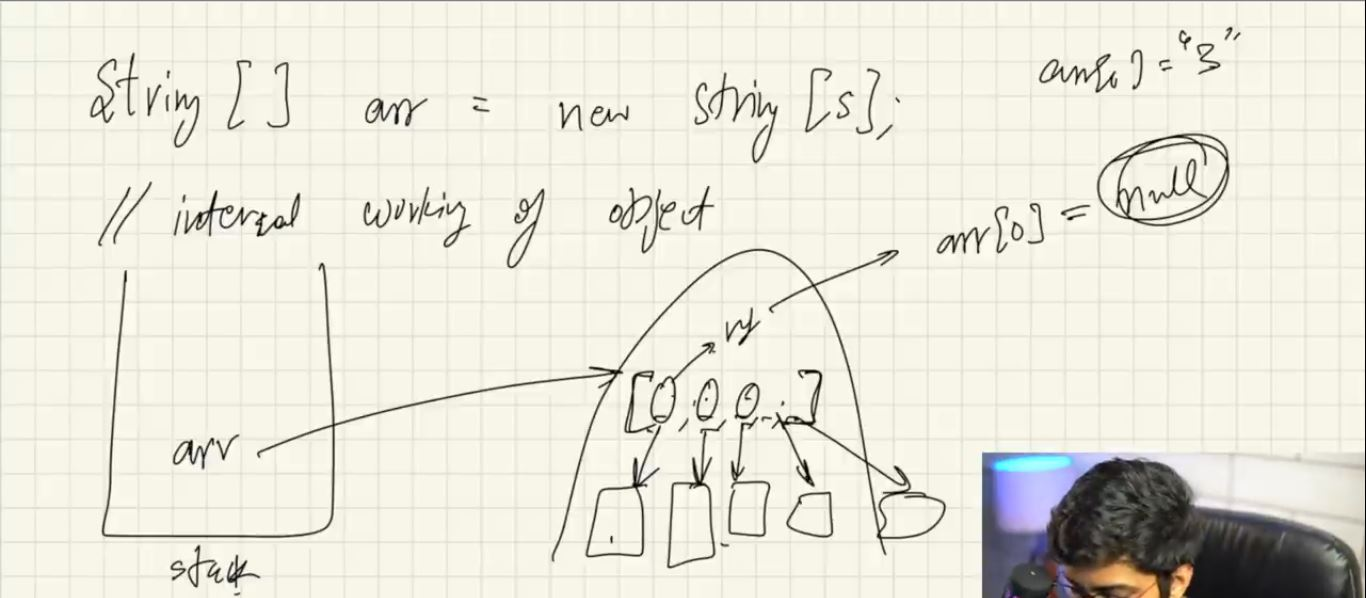 String [ ] arr = new String [5];
arr[0] = "3"
// internal working of object
arr[0] = null
arr
stack